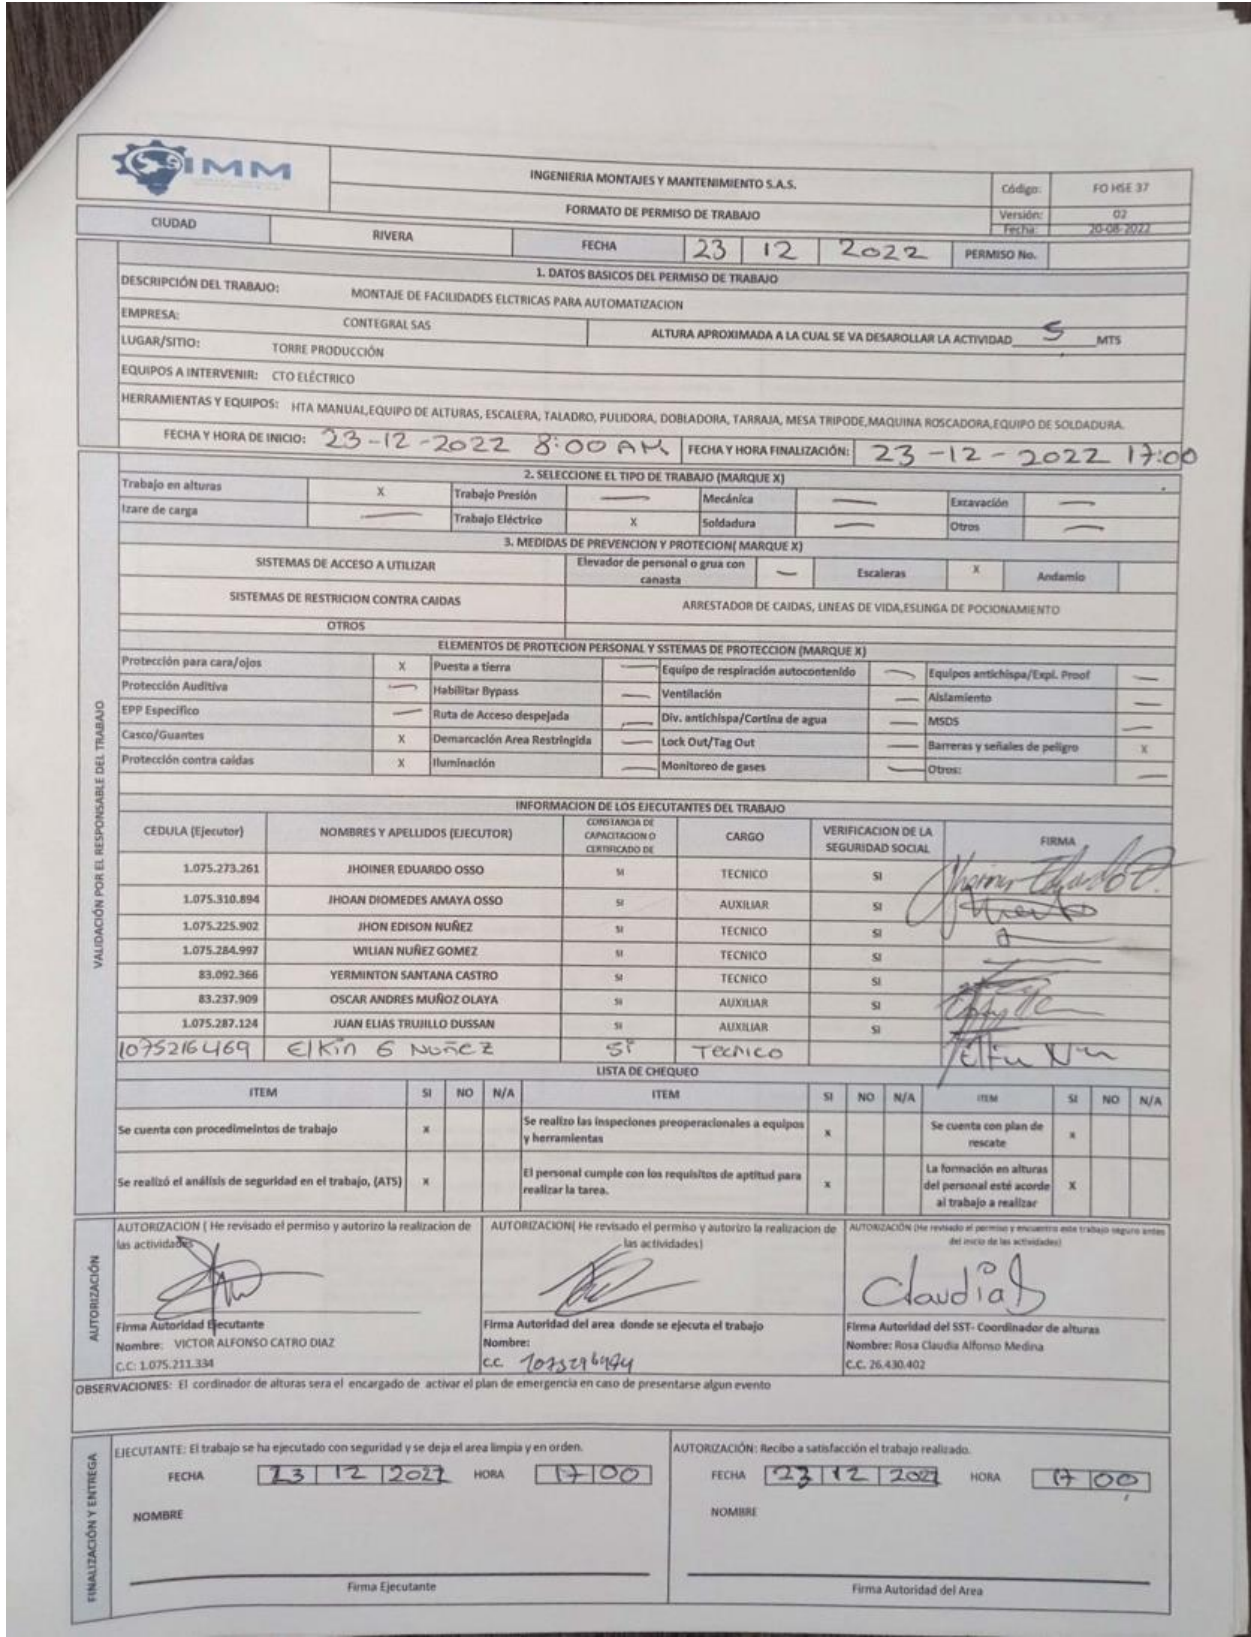 SIMM
INGENIERIA MONTAJES Y MANTENIMIENTO S.A.S.
Código: FO HSE 37
FORMATO DE PERMISO DE TRABAJO
Versión: 02
Fecha: 20-08-2022
CIUDAD RIVERA FECHA 23 12 2022 PERMISO No.
1. DATOS BASICOS DEL PERMISO DE TRABAJO
DESCRIPCIÓN DEL TRABAJO: MONTAJE DE FACILIDADES ELCTRICAS PARA AUTOMATIZACION
EMPRESA: CONTEGRAL SAS ALTURA APROXIMADA A LA CUAL SE VA DESAROLLAR LA ACTIVIDAD 5 MTS
LUGAR/SITIO: TORRE PRODUCCIÓN
EQUIPOS A INTERVENIR: CTO ELÉCTRICO
HERRAMIENTAS Y EQUIPOS: HTA MANUAL,EQUIPO DE ALTURAS, ESCALERA, TALADRO, PULIDORA, DOBLADORA, TARRAJA, MESA TRIPODE,MAQUINA ROSCADORA,EQUIPO DE SOLDADURA.
FECHA Y HORA DE INICIO: 23-12-2022 8:00 AM FECHA Y HORA FINALIZACIÓN: 23-12-2022 17:00
VALIDACIÓN POR EL RESPONSABLE DEL TRABAJO
2. SELECCIONE EL TIPO DE TRABAJO (MARQUE X)
Trabajo en alturas X Trabajo Presión — Mecánica — Excavación —
Izare de carga — Trabajo Eléctrico X Soldadura — Otros —
3. MEDIDAS DE PREVENCION Y PROTECION( MARQUE X)
SISTEMAS DE ACCESO A UTILIZAR Elevador de personal o grua con canasta — Escaleras X Andamio
SISTEMAS DE RESTRICION CONTRA CAIDAS ARRESTADOR DE CAIDAS, LINEAS DE VIDA,ESLINGA DE POCIONAMIENTO
OTROS
ELEMENTOS DE PROTECION PERSONAL Y SSTEMAS DE PROTECCION (MARQUE X)
Protección para cara/ojos X Puesta a tierra — Equipo de respiración autocontenido — Equipos antichispa/Expl. Proof —
Protección Auditiva — Habilitar Bypass — Ventilación — Aislamiento —
EPP Especifico — Ruta de Acceso despejada — Div. antichispa/Cortina de agua — MSDS —
Casco/Guantes X Demarcación Area Restringida — Lock Out/Tag Out — Barreras y señales de peligro X
Protección contra caidas X Iluminación — Monitoreo de gases — Otros: —
INFORMACION DE LOS EJECUTANTES DEL TRABAJO
CEDULA (Ejecutor) NOMBRES Y APELLIDOS (EJECUTOR) CONSTANCIA DE CAPACITACION O CERTIFICADO DE CARGO VERIFICACION DE LA SEGURIDAD SOCIAL FIRMA
1.075.273.261 JHOINER EDUARDO OSSO SI TECNICO SI
1.075.310.894 JHOAN DIOMEDES AMAYA OSSO SI AUXILIAR SI
1.075.225.902 JHON EDISON NUÑEZ SI TECNICO SI
1.075.284.997 WILIAN NUÑEZ GOMEZ SI TECNICO SI
83.092.366 YERMINTON SANTANA CASTRO SI TECNICO SI
83.237.909 OSCAR ANDRES MUÑOZ OLAYA SI AUXILIAR SI
1.075.287.124 JUAN ELIAS TRUJILLO DUSSAN SI AUXILIAR SI
1075216469 Elkin G NUÑEZ SI Tecnico
LISTA DE CHEQUEO
ITEM SI NO N/A ITEM SI NO N/A ITEM SI NO N/A
Se cuenta con procedimeintos de trabajo X Se realizo las inspeciones preoperacionales a equipos y herramientas X Se cuenta con plan de rescate X
Se realizó el análisis de seguridad en el trabajo, (ATS) X El personal cumple con los requisitos de aptitud para realizar la tarea. X La formación en alturas del personal esté acorde al trabajo a realizar X
AUTORIZACIÓN
AUTORIZACION ( He revisado el permiso y autorizo la realizacion de las actividades
AUTORIZACION( He revisado el permiso y autorizo la realizacion de las actividades)
AUTORIZACIÓN (He revisado el permiso y encuentro este trabajo seguro antes del inicio de las actividades)
Claudia
Firma Autoridad Ejecutante
Nombre: VICTOR ALFONSO CATRO DIAZ
C.C: 1.075.211.334
Firma Autoridad del area donde se ejecuta el trabajo
Nombre:
C.C.
Firma Autoridad del SST- Coordinador de alturas
Nombre: Rosa Claudia Alfonso Medina
C.C. 26.430.402
OBSERVACIONES: El cordinador de alturas sera el encargado de activar el plan de emergencia en caso de presentarse algun evento
FINALIZACIÓN Y ENTREGA
EJECUTANTE: El trabajo se ha ejecutado con seguridad y se deja el area limpia y en orden.
FECHA 23 12 2022 HORA 17 00
NOMBRE
Firma Ejecutante
AUTORIZACIÓN: Recibo a satisfacción el trabajo realizado.
FECHA 23 12 2022 HORA 17 00
NOMBRE
Firma Autoridad del Area